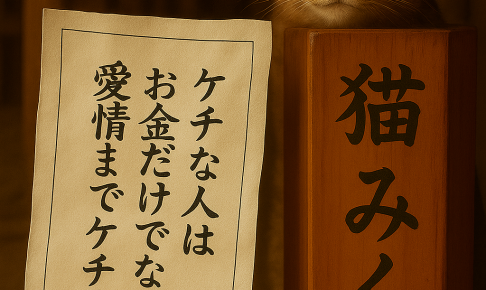 ケチな人は
お金だけでな
愛情までケチ
猫み